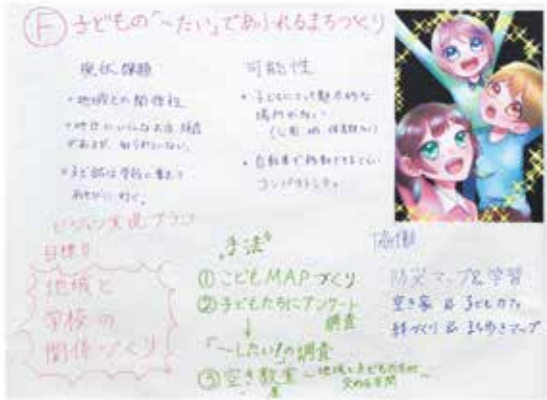 Ⓕ 子どもの「〜たい」であふれるまちづくり
現状・課題
・地域との関係性
・地域にいろんなお店・施設
があるが、知られていない。
可能性
・子どもにとって魅力的な
場所が多い
・自転車で移動できるくらい
コンパクトシティ
ビジョン実現プラン
目標!!
地域と
学校の
関係づくり
"手法"
① こどもMAPづくり
② 子どもたちにアンケート
調査
↓
「〜したい!」の調査
③ 空き教室
〜地域と子どもたちが
交わる空間〜
協働
防災マップ&学習
空き家 & 子どもカフェ
絆づくり & まち歩きマップ